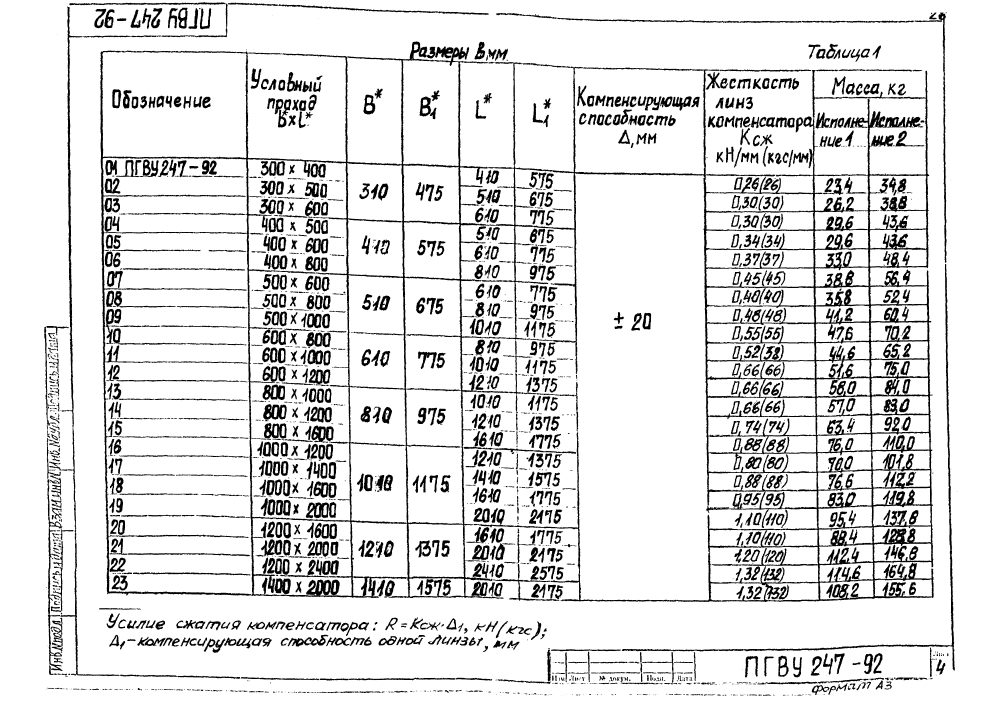 ПГВУ 247-92
26
Размеры в мм
Таблица 1
Обозначение
Условный проход B*×L*
B*
B₁*
L*
L₁*
Компенсирующая способность Δ, мм
Жесткость линз компенсатора Kсж кН/мм (кгс/мм)
Масса, кг
Исполнение 1
Исполнение 2
01 ПГВУ 247-92 300 × 400 310 475 410 575 ± 20 0,26(26) 23,4 34,8
02 300 × 500 510 675 0,30(30) 26,2 38,8
03 300 × 600 610 775 0,30(30) 29,6 43,6
04 400 × 500 410 575 510 675 0,34(34) 29,6 43,6
05 400 × 600 610 775 0,37(37) 33,0 48,4
06 400 × 800 810 975 0,45(45) 38,8 56,4
07 500 × 600 510 675 610 775 0,40(40) 35,8 52,4
08 500 × 800 810 975 0,48(48) 41,2 60,4
09 500 × 1000 1010 1175 0,55(55) 47,6 70,2
10 600 × 800 610 775 810 975 0,52(38) 44,6 65,2
11 600 × 1000 1010 1175 0,66(66) 51,6 75,0
12 600 × 1200 1210 1375 0,66(66) 56,0 84,0
13 800 × 1000 810 975 1010 1175 0,66(66) 57,0 83,0
14 800 × 1200 1210 1375 0,74(74) 63,4 92,0
15 800 × 1600 1610 1775 0,88(88) 76,0 110,0
16 1000 × 1200 1010 1175 1210 1375 0,80(80) 70,0 101,8
17 1000 × 1400 1410 1575 0,88(88) 76,6 112,2
18 1000 × 1600 1610 1775 0,95(95) 83,0 119,8
19 1000 × 2000 2010 2175 1,10(110) 95,4 137,8
20 1200 × 1600 1210 1375 1610 1775 1,10(110) 88,4 128,8
21 1200 × 2000 2010 2175 1,20(120) 112,4 146,8
22 1200 × 2400 2410 2575 1,32(132) 114,6 164,8
23 1400 × 2000 1410 1575 2010 2175 1,32(132) 108,2 155,6
Усилие сжатия компенсатора: R = Kсж·Δ₁, кН(кгс);
Δ₁-компенсирующая способность одной линзы, мм
Изм Лист № докум. Подп. Дата
ПГВУ 247-92
Лист
4
Формат А3
Инв.№подл. Подпись и дата Взам.инв.№ Инв.№дубл. Подпись и дата